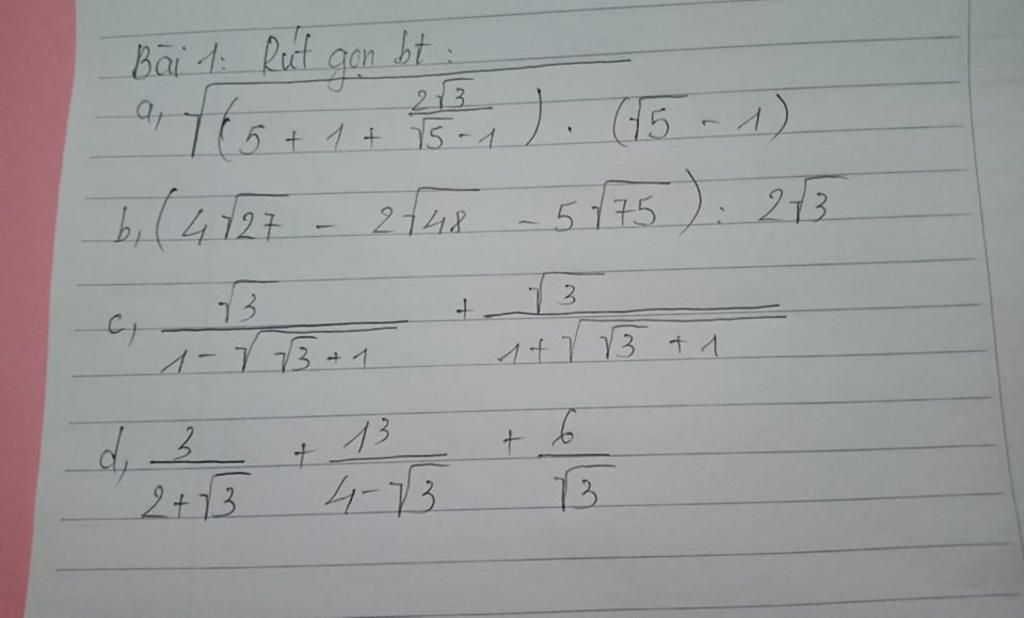 Bài 1: Rút gọn bt:
a, √((5 + 1 + (2√3)/(√5 - 1)) . (√5 - 1)
b, (4√27 - 2√48 - 5√75) : 2√3
c, √3/(1 - √(√3 + 1)) + √3/(1 + √(√3 + 1))
d, 3/(2 + √3) + 13/(4 - √3) + 6/√3